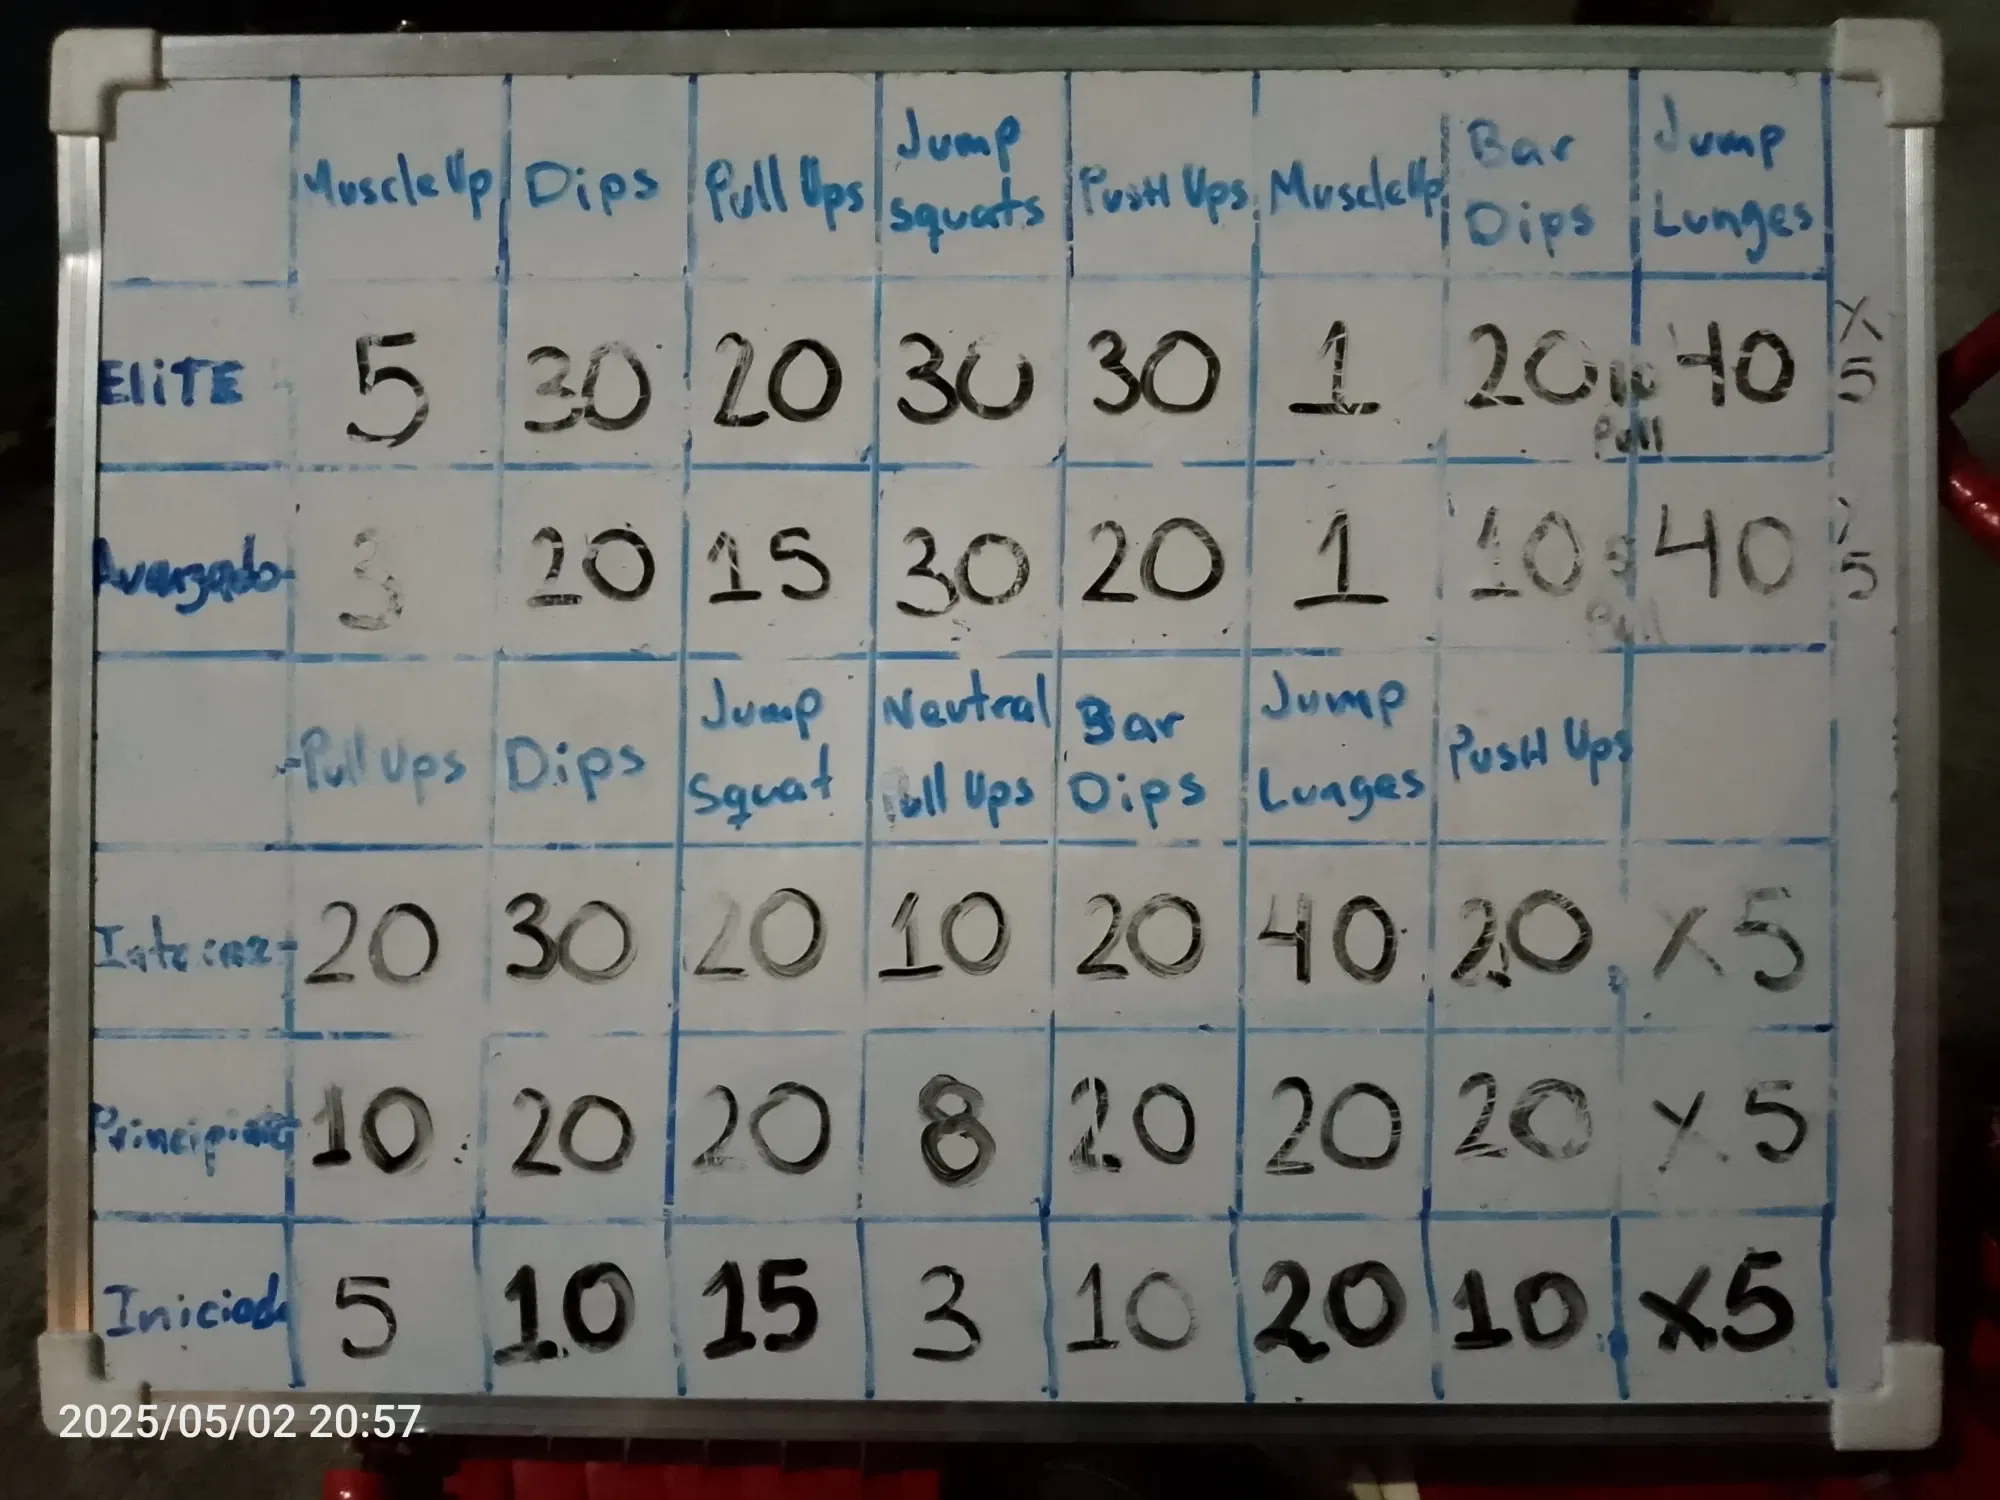 MuscleUp Dips Pull Ups Jump squats PusH Ups MuscleUp Bar Dips Jump Lunges
ELiTE 5 30 20 30 30 1 20 10 Pull 40 X 5
Avanzado 3 20 15 30 20 1 10 Pull 40 5
Pull Ups Dips Jump Squat Neutral Pull Ups Bar Dips Jump Lunges PusH Ups
20 30 20 10 20 40 20 X 5
10 20 20 8 20 20 20 X 5
Iniciado 5 10 15 3 10 20 10 X5
2025/05/02 20:57